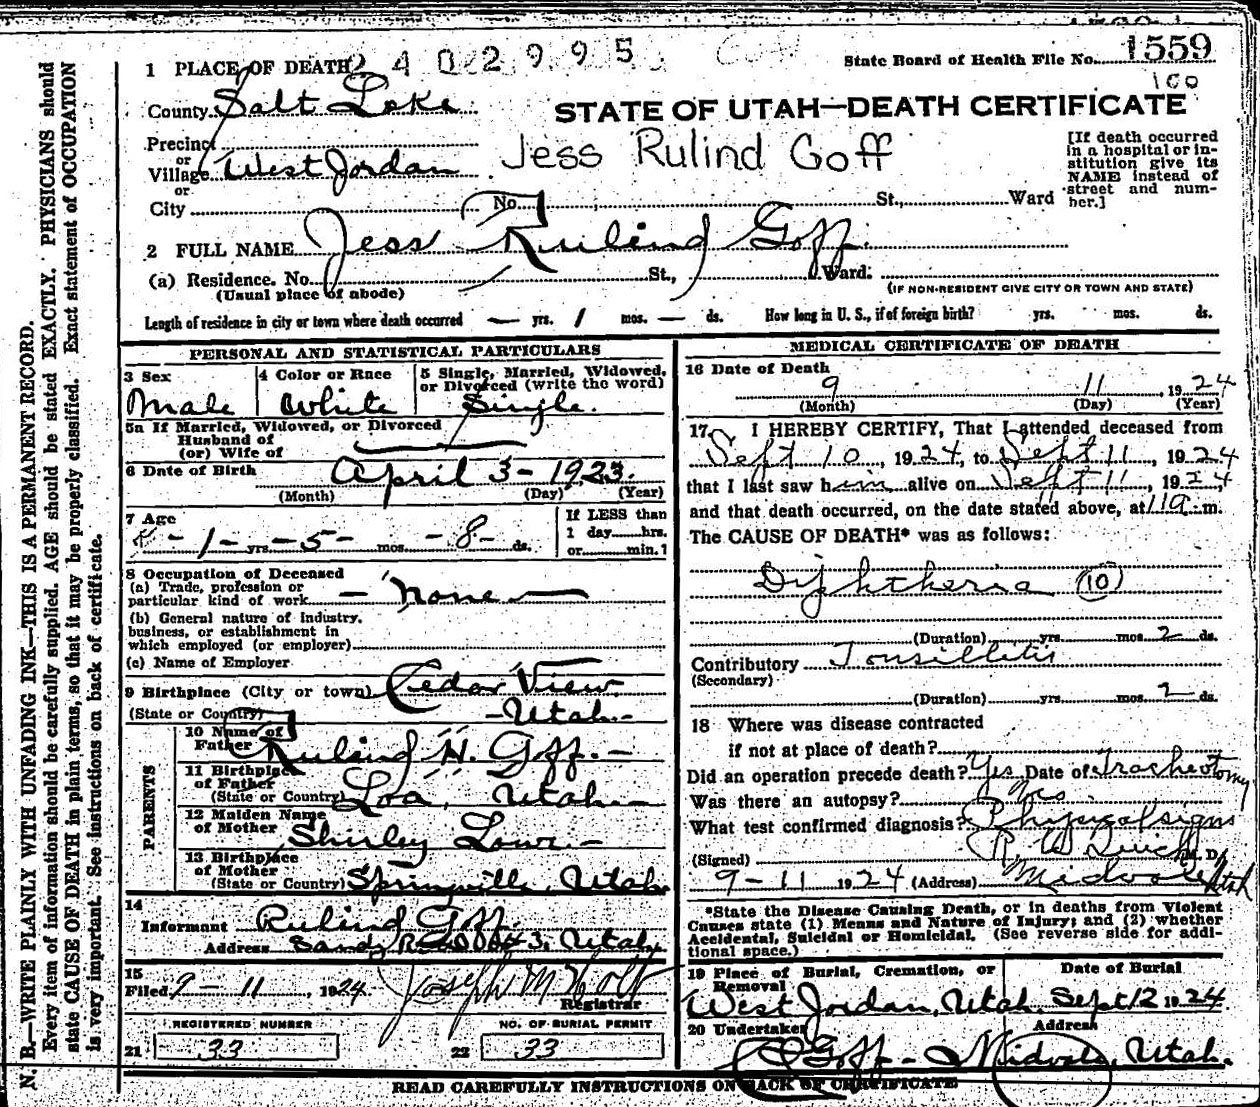 2402995
State Board of Health File No. 1559
160
1 PLACE OF DEATH
County Salt Lake
STATE OF UTAH—DEATH CERTIFICATE
Precinct
or
Village West Jordan
or
City
Jess Rulind Goff
[If death occurred
in a hospital or in-
stitution give its
NAME instead of
street and num-
ber.]
No. St., Ward
2 FULL NAME Jess Ruling Goff.
(a) Residence. No. St., Ward.
(Usual place of abode)
(IF NON-RESIDENT GIVE CITY OR TOWN AND STATE)
Length of residence in city or town where death occurred — yrs. 1 mos. — ds. How long in U. S., if of foreign birth? yrs. mos. ds.
PERSONAL AND STATISTICAL PARTICULARS
3 Sex
Male
4 Color or Race
White
5 Single, Married, Widowed,
or Divorced (write the word)
Single.
5a If Married, Widowed, or Divorced
Husband of
(or) Wife of
6 Date of Birth April 3 - 1923.
(Month) (Day) (Year)
7 Age
- 1 - yrs. - 5 - mos. - 8 - ds.
If LESS than
1 day hrs.
or min.1
8 Occupation of Deceased
(a) Trade, profession or
particular kind of work — none —
(b) General nature of industry,
business, or establishment in
which employed (or employer)
(c) Name of Employer
9 Birthplace (City or town) Cedar View.
(State or Country) - Utah. -
PARENTS
10 Name of
Father Ruling H. Goff. -
11 Birthplace
of Father
(State or Country) Loa, Utah. -
12 Maiden Name
of Mother Shirley -
13 Birthplace
of Mother
(State or Country) Springville, Utah.
14
Informant Ruling Goff.
Address Sandy R. No 3, Utah.
15
Filed 9 - 11, 1924. Joseph M Holt
Registrar
REGISTERED NUMBER
21 33
NO. OF BURIAL PERMIT
22 33
MEDICAL CERTIFICATE OF DEATH
16 Date of Death
9 11, 1924
(Month) (Day) (Year)
17. I HEREBY CERTIFY, That I attended deceased from
Sept 10, 1924, to Sept 11, 1924
that I last saw him alive on Sept 11, 1924
and that death occurred, on the date stated above, at m.
The CAUSE OF DEATH* was as follows:
Diphtheria (10)
(Duration) yrs. mos. 2 ds.
Contributory Tonsillitis
(Secondary)
(Duration) yrs. mos. 2 ds.
18 Where was disease contracted
if not at place of death?
Did an operation precede death? Yes Date of Tracheotomy
Was there an autopsy?
What test confirmed diagnosis? Physical signs
(Signed) M. D.
9 - 11 1924 (Address) Midvale Utah
*State the Disease Causing Death, or in deaths from Violent
Causes state (1) Means and Nature of Injury; and (2) whether
Accidental, Suicidal or Homicidal. (See reverse side for addi-
tional space.)
19 Place of Burial, Cremation, or
Removal
West Jordan, Utah.
Date of Burial
Sept 12 1924
20 Undertaker
Goff -
Address
Midvale, Utah.
READ CAREFULLY INSTRUCTIONS ON BACK OF CERTIFICATE
N. B.—WRITE PLAINLY WITH UNFADING INK—THIS IS A PERMANENT RECORD.
Every item of information should be carefully supplied. AGE should be stated EXACTLY. PHYSICIANS should
state CAUSE OF DEATH in plain terms, so that it may be properly classified. Exact statement of OCCUPATION
is very important. See instructions on back of certificate.